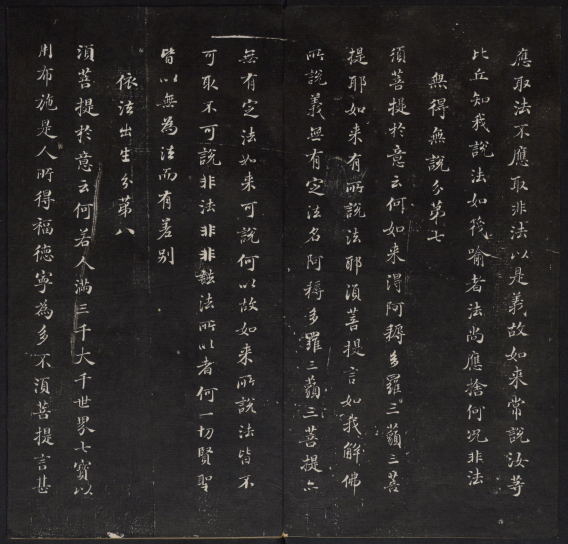 應取法不應取非法以是義故如来常說汝等
比丘知我說法如筏喻者法尚應捨何況非法
無得無說分第七
須菩提於意云何如来得阿耨多羅三藐三菩
提耶如来有所說法耶須菩提言如我解佛
所說義無有定法名阿耨多羅三藐三菩提亦
無有定法如来可說何以故如来所說法皆不
可取不可說非法非非法所以者何一切賢聖
皆以無為法而有差别
依法出生分第八
須菩提於意云何若人滿三千大千世界七寶以
用布施是人所得福德寧為多不須菩提言甚